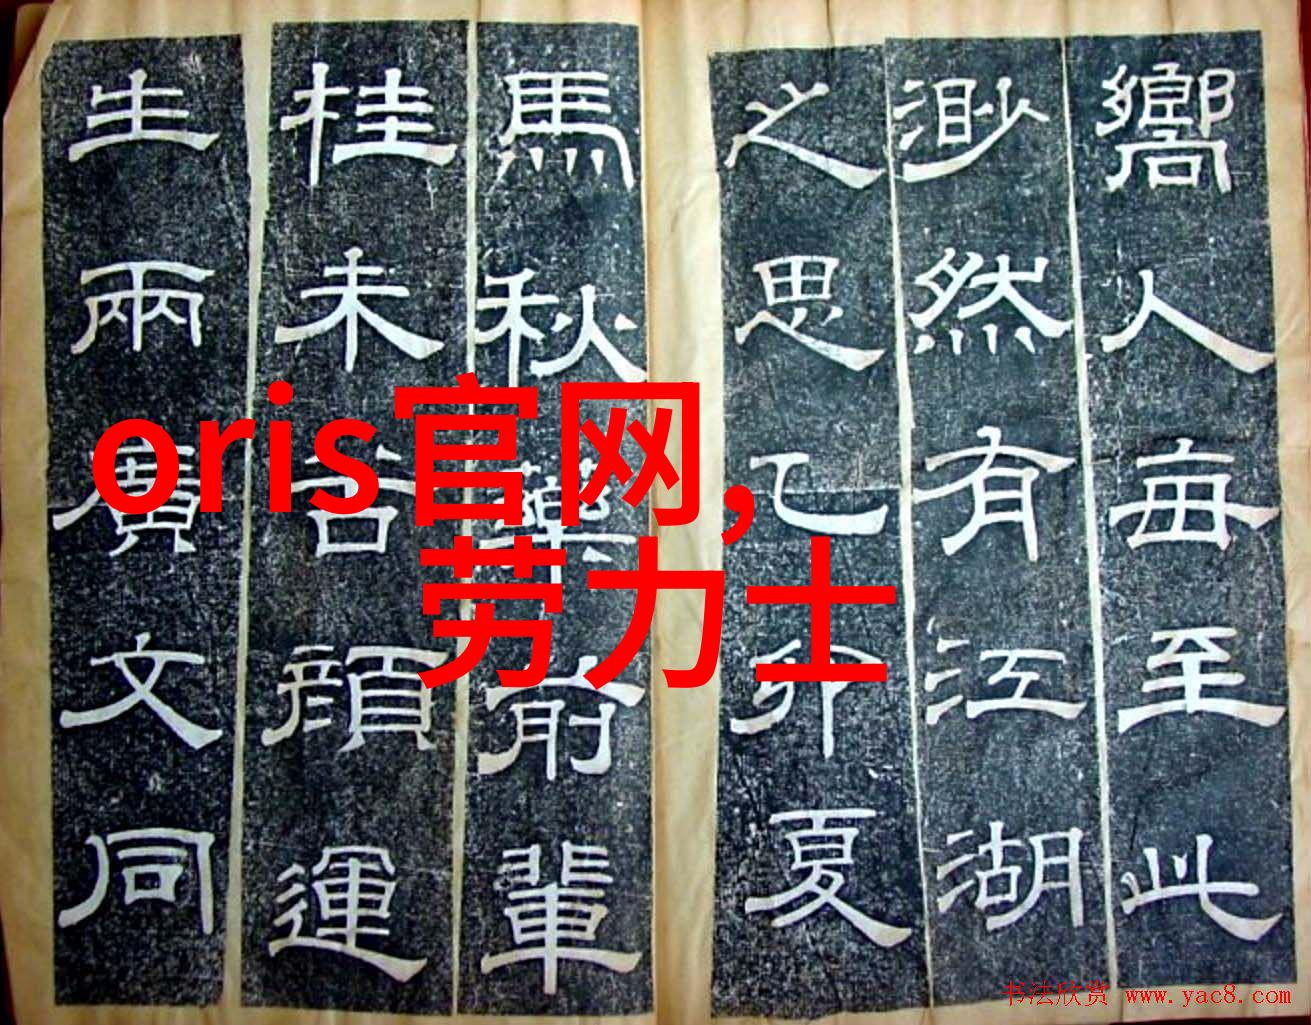 嚮人每至此
渺然有江湖
之思乙卯夏
馬秋藥前輩
桂未谷顏運
生兩廣文同
oris官网,
劳力士
书法欣赏 www.yac8.com